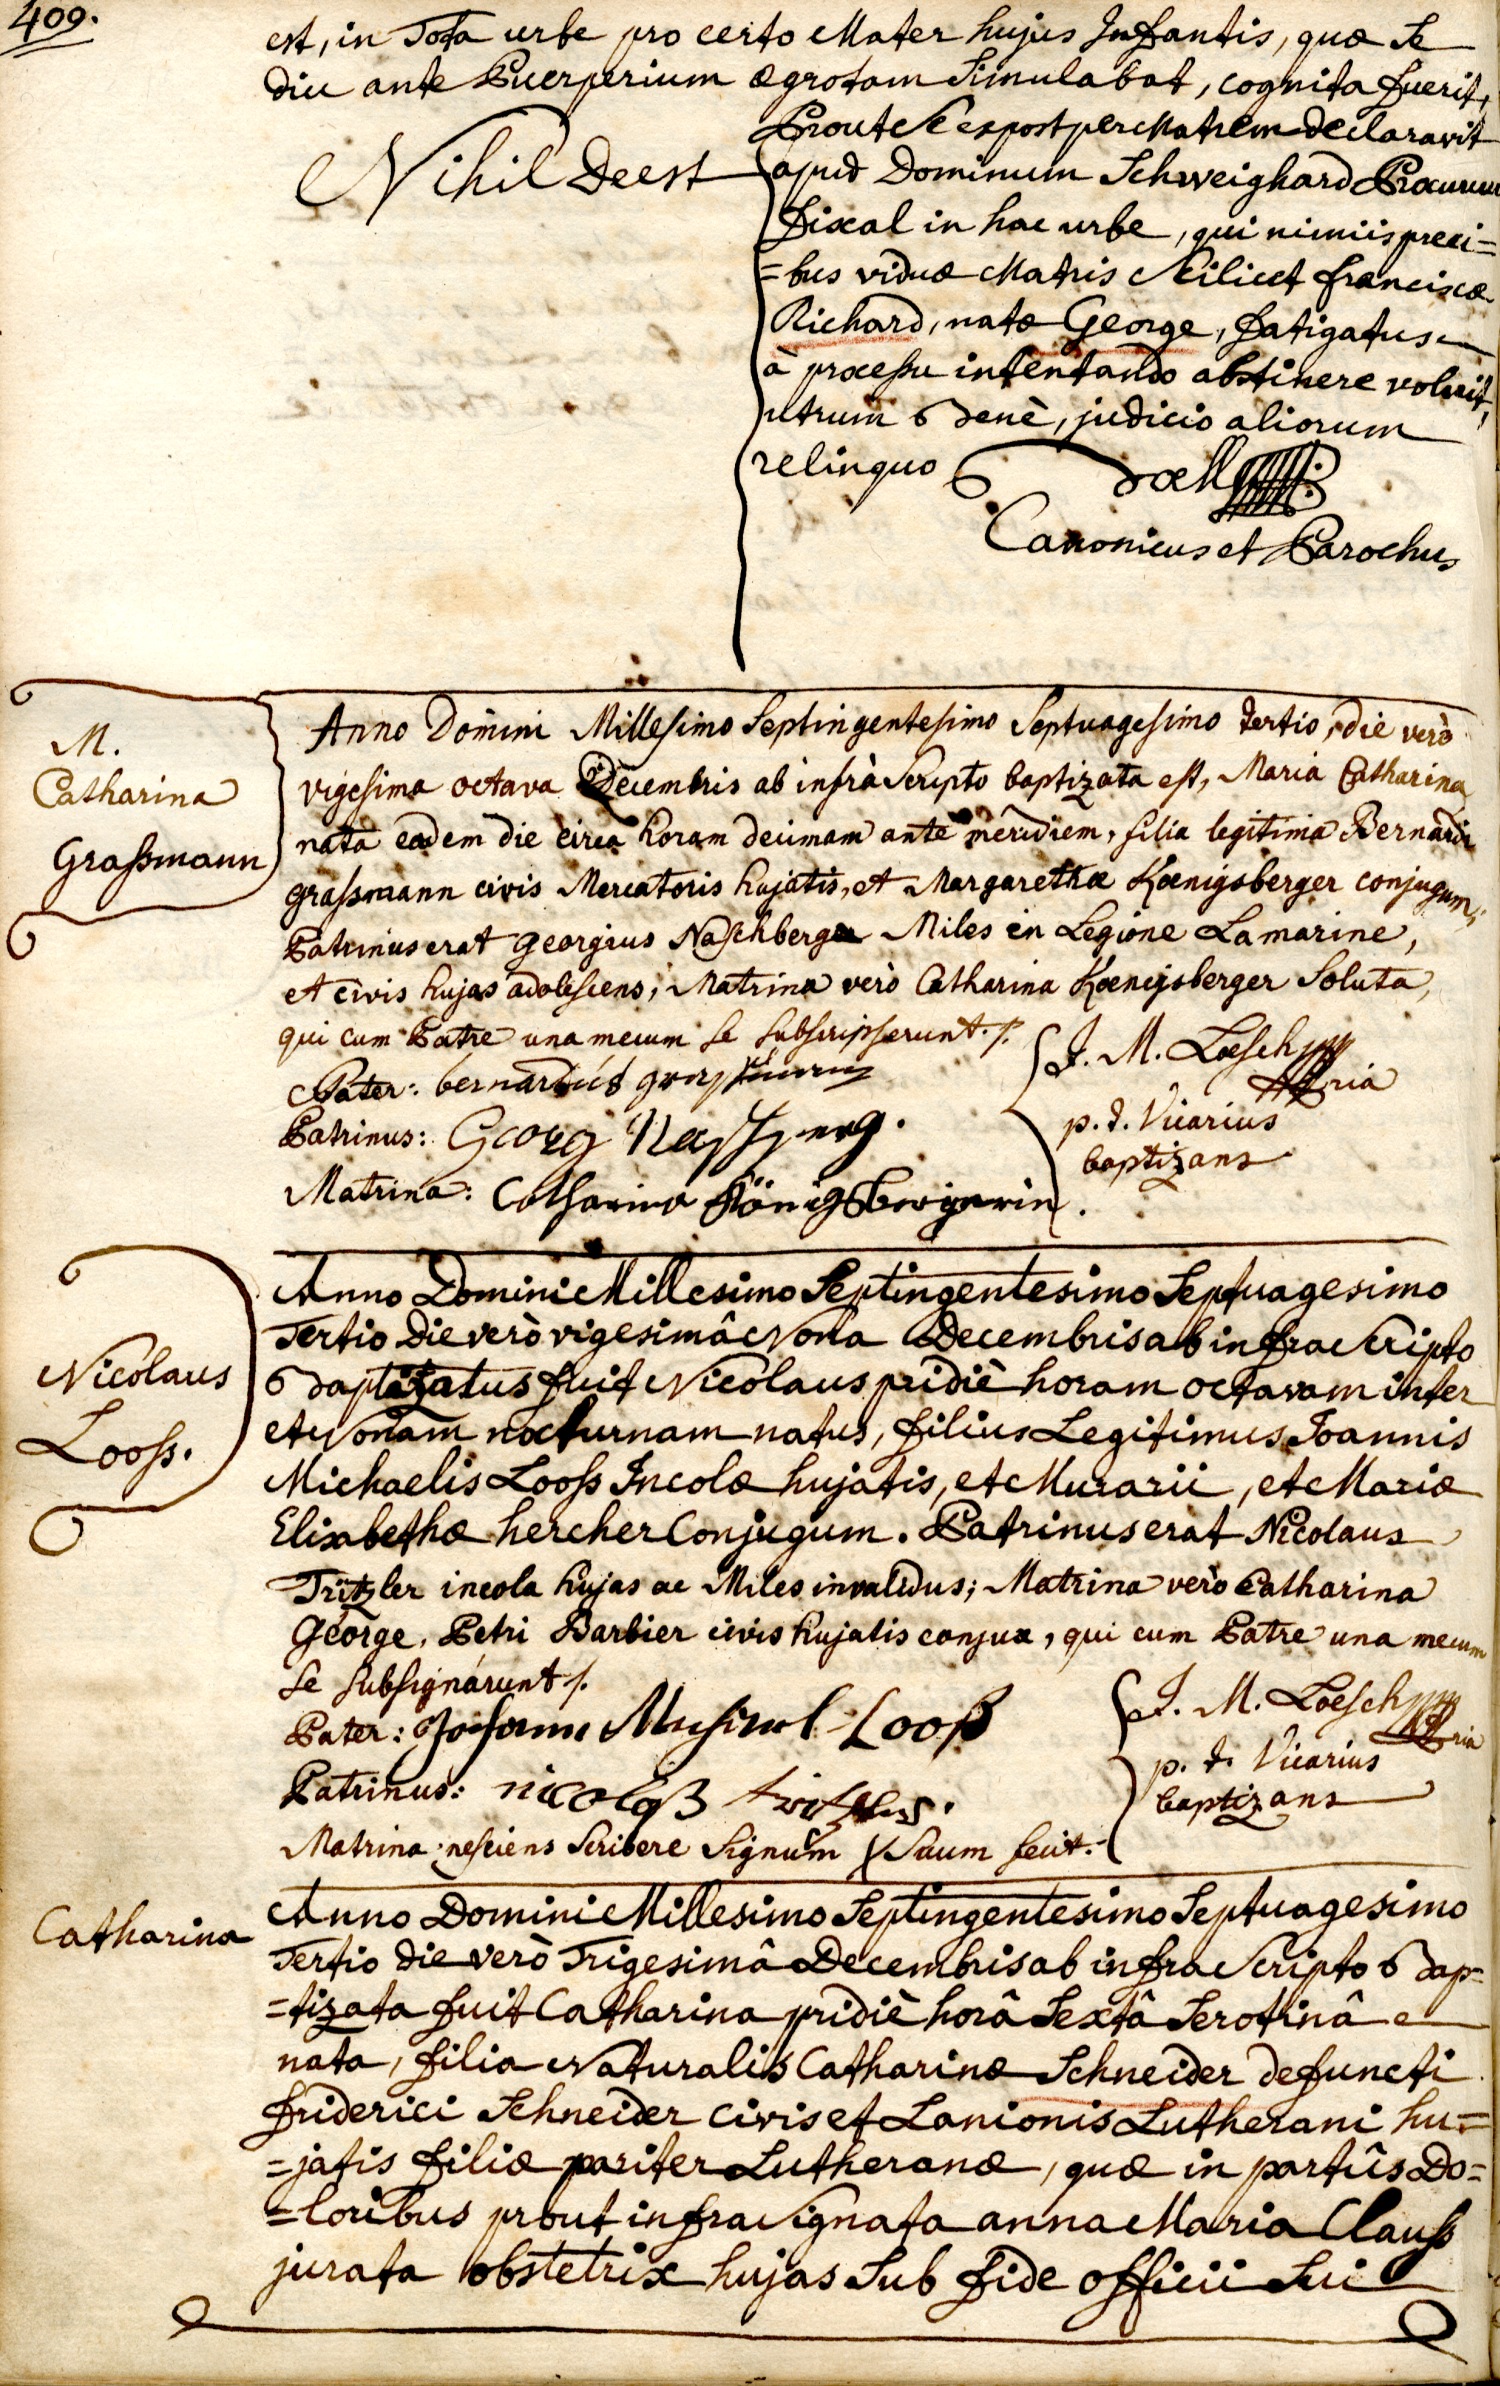 409.
est, in Tota urbe pro certo Mater hujus Infantis, quæ Se
diu ante Puerperium ægrotam Simulabat, cognita fuerit,
Prout Se expost per Matrem declaravit
Nihil Deest
apud Dominum Schweighard
fixal in hac urbe, qui nimiis preci=
=bus viduæ Matris Scilicet franciscæ
Richard, natæ George, fatigatus
à processu intentando abstinere voluit,
utrum benè, judicio aliorum
relinquo
Canonicus et Parochus
M.
Catharina
Graßmann
Anno Domini Millesimo Septingentesimo Septuagesimo tertio, die verò
vigesima octava Decembris ab infrà Scripto baptizata est, Maria Catharina
nata eadem die circa horam decimam ante meridiem, filia legitima Bernardi
graßmann civis Mercatoris hujatis, et Margarethæ Kœnigsberger conjugum,
Patrinus erat georgius Naschberger Miles in Legione Lamarine,
et civis hujas adolescens; Matrina verò Catharina Kœnigsberger Soluta,
qui cum Patre una mecum se subscripserunt ./.
Pater: bernardus graßmann
Patrinus: Georg
Matrina: Catharina Königsbergerin.
J. M. Lœsch
p. t. Vicarius
baptizans
Nicolaus
Looß.
Anno Domini Millesimo Septingentesimo Septuagesimo
Tertio Die verò vigesimâ Nona Decembris ab infra Scripto
baptizatus fuit Nicolaus pridiè horam octavam inter
et Nonam nocturnam natus, filius Legitimus Joannis
Michaelis Looß Incolæ hujatis, et Murarii, et Mariæ
Elisabethæ hercher Conjugum. Patrinus erat Nicolaus
Tritzler incola hujas ac Miles invalidus; Matrina verò Catharina
George, Petri Barbier civis hujatis conjux, qui cum Patre una mecum
se subsignárunt ./.
Pater: Johann Michael Looß
Patrinus: nicolaß
Matrina nesciens Scribere Signum X Suum fecit.
J. M. Loesch
p. t. Vicarius
baptizans
Catharina
Anno Domini Millesimo Septingentesimo Septuagesimo
Tertio die verò Trigesimâ Decembris ab infra Scripto bap=
=tizata fuit Catharina pridiè horâ Sextâ Serotinâ
nata, filia Naturalis Catharinæ Schneider defuncti
friderici Schneider civis et Lanionis Lutherani hu=
=jatis filiæ pariter Lutheranæ, quæ in partûs Do=
=loribus prout infra Signata anna Maria Clauß
jurata obstetrix hujas Sub fide officii Sui